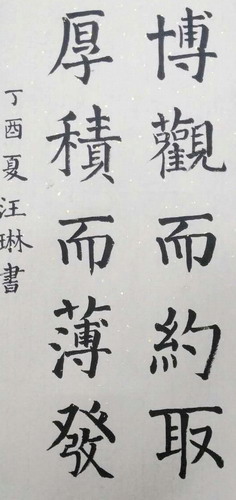 博觀而約取
厚積而薄發
丁酉夏汪琳書